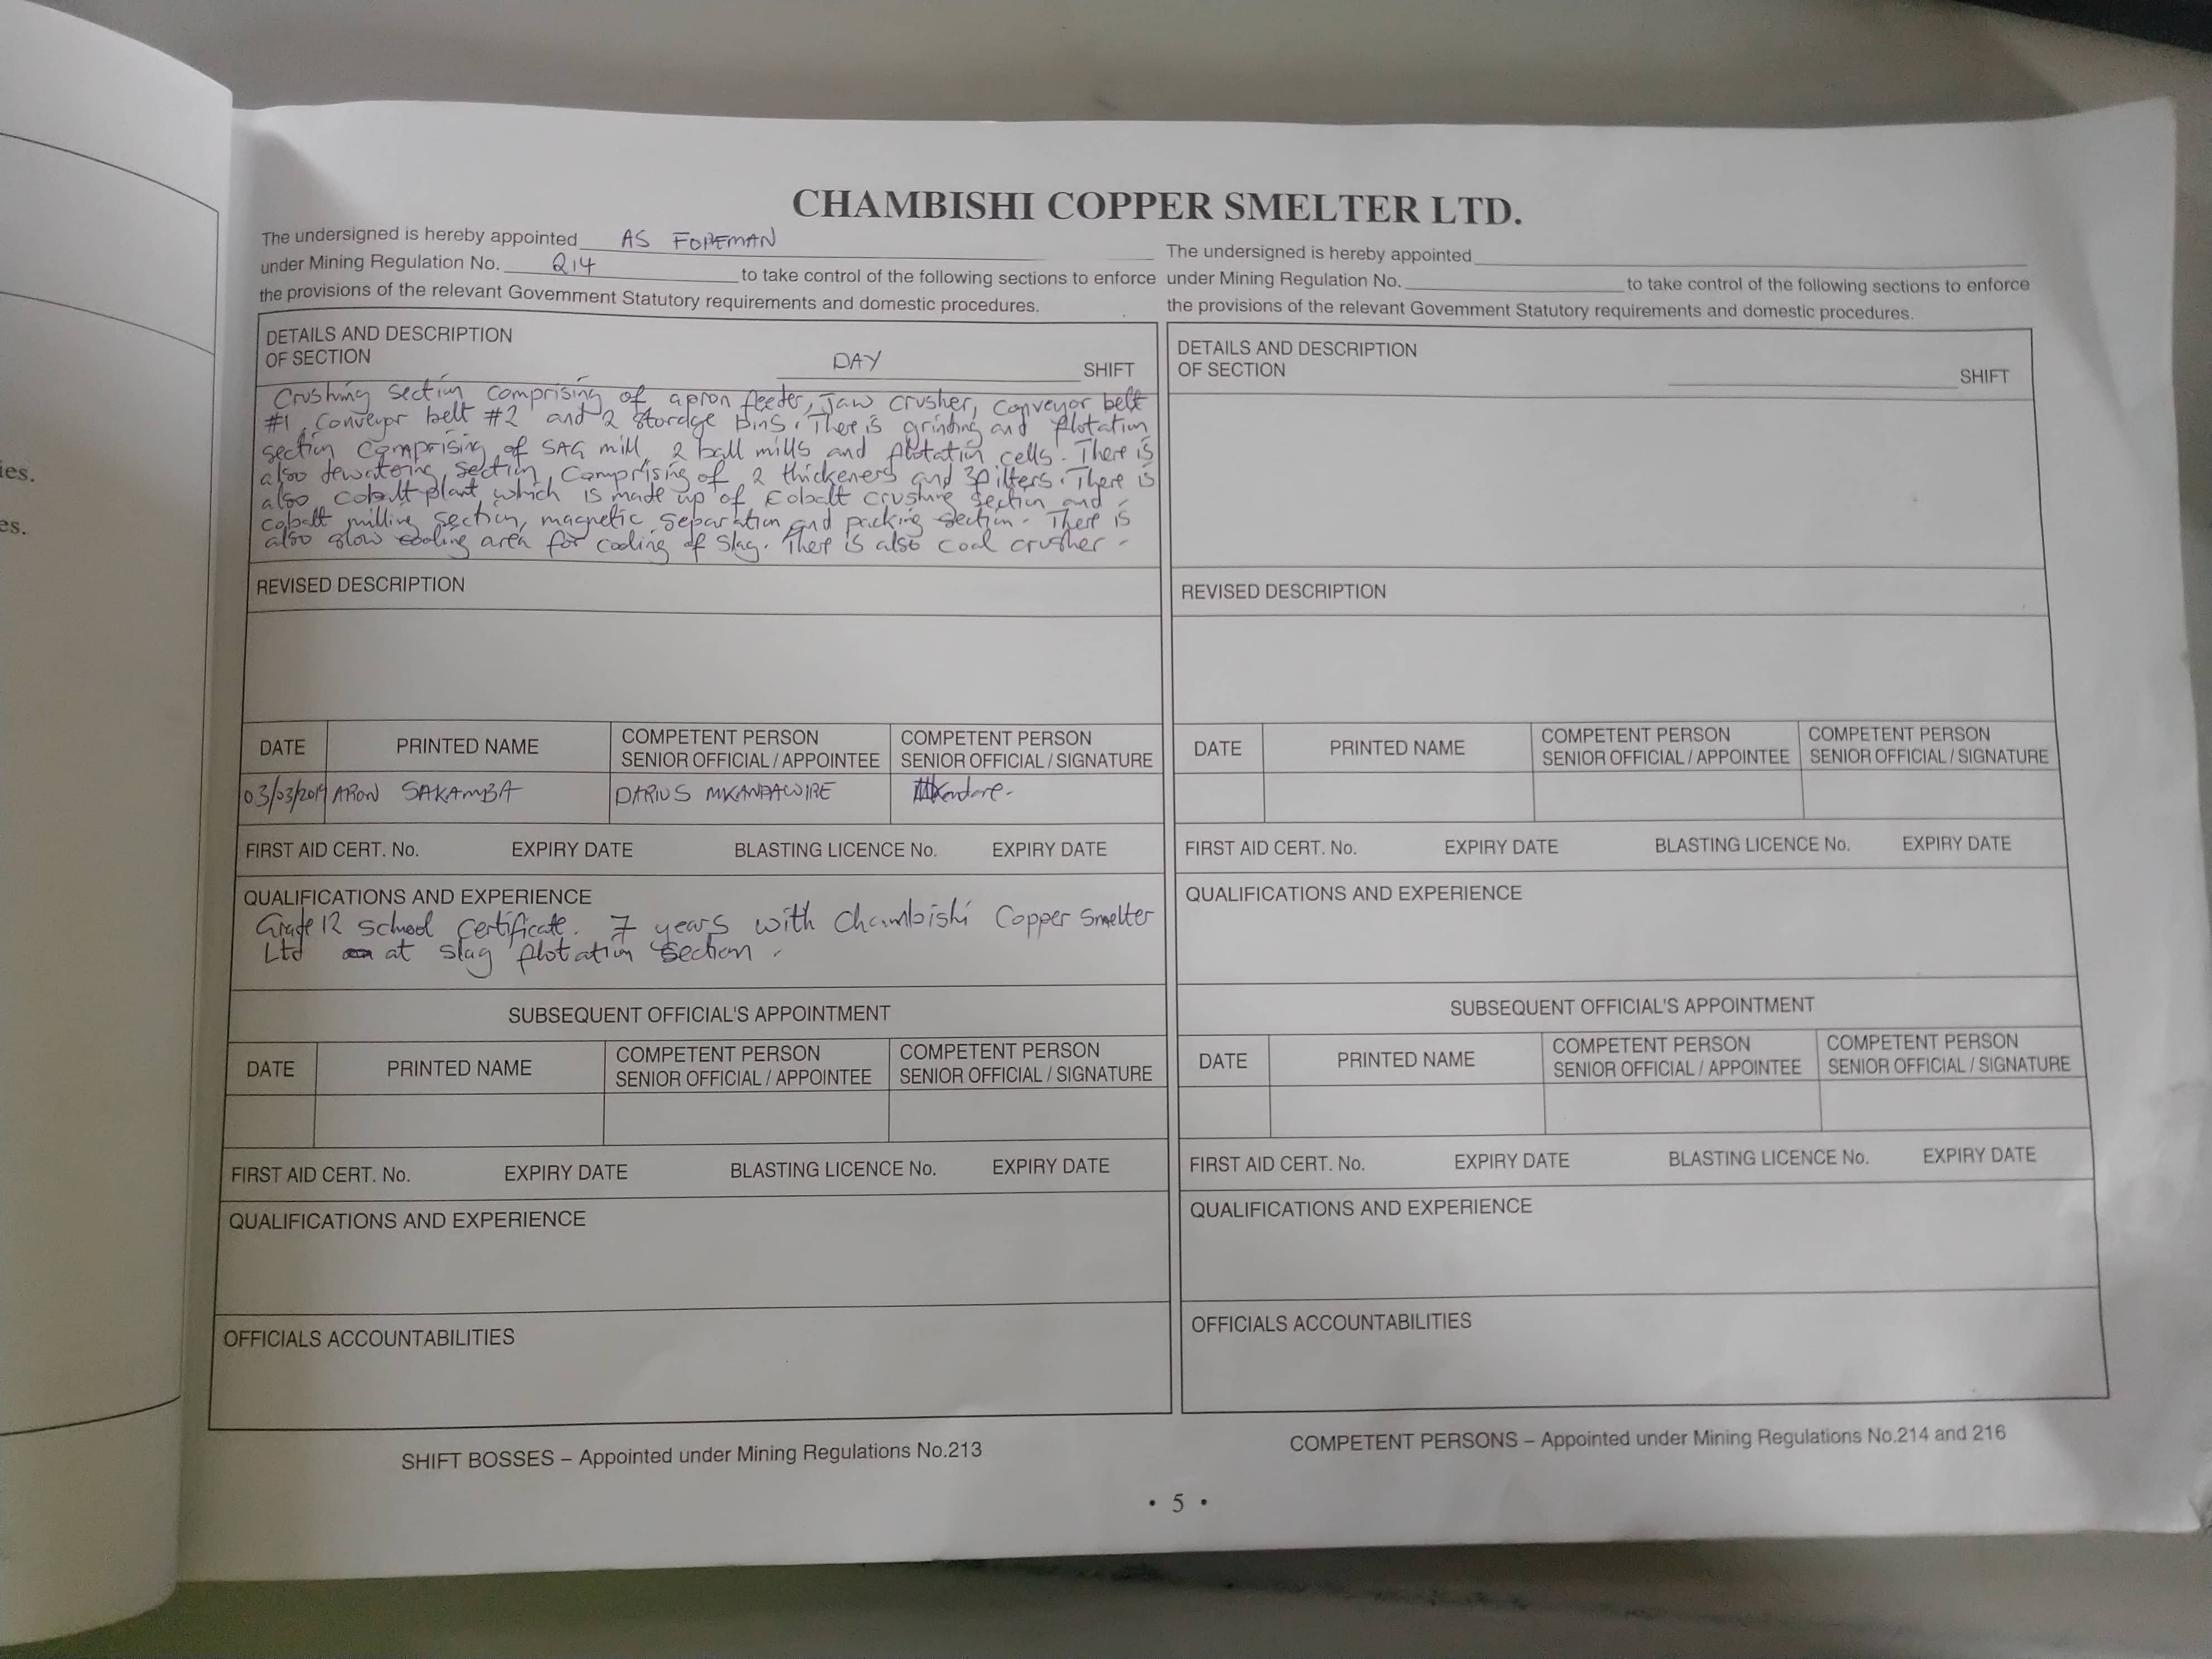 ies.
es.
CHAMBISHI COPPER SMELTER LTD.
The undersigned is hereby appointed AS FOREMAN
under Mining Regulation No. 214 to take control of the following sections to enforce
the provisions of the relevant Government Statutory requirements and domestic procedures.
DETAILS AND DESCRIPTION
OF SECTION DAY SHIFT
Crushing section comprising of apron feeder, jaw crusher, conveyor belt
#1, conveyor belt #2 and 2 storage bins. There is grinding and flotation
section comprising of SAG mill, 2 ball mills and flotation cells. There is
also dewatering section, comprising of 2 thickeners and 3 filters. There is
also cobalt plant which is made up of cobalt crushing section and
cobalt milling section, magnetic separation and packing section. There is
also slow cooling area for cooling of slag. There is also coal crusher.
REVISED DESCRIPTION
DATE PRINTED NAME COMPETENT PERSON SENIOR OFFICIAL / APPOINTEE COMPETENT PERSON SENIOR OFFICIAL / SIGNATURE
03/03/2019 ARON SAKAMBA DARIUS MKANDAWIRE
FIRST AID CERT. No. EXPIRY DATE BLASTING LICENCE No. EXPIRY DATE
QUALIFICATIONS AND EXPERIENCE
Grade 12 school certificate. 7 years with Chambishi Copper Smelter
Ltd at slag flotation section.
SUBSEQUENT OFFICIAL'S APPOINTMENT
DATE PRINTED NAME COMPETENT PERSON SENIOR OFFICIAL / APPOINTEE COMPETENT PERSON SENIOR OFFICIAL / SIGNATURE
FIRST AID CERT. No. EXPIRY DATE BLASTING LICENCE No. EXPIRY DATE
QUALIFICATIONS AND EXPERIENCE
OFFICIALS ACCOUNTABILITIES
SHIFT BOSSES – Appointed under Mining Regulations No.213
The undersigned is hereby appointed
under Mining Regulation No. to take control of the following sections to enforce
the provisions of the relevant Government Statutory requirements and domestic procedures.
DETAILS AND DESCRIPTION
OF SECTION SHIFT
REVISED DESCRIPTION
DATE PRINTED NAME COMPETENT PERSON SENIOR OFFICIAL / APPOINTEE COMPETENT PERSON SENIOR OFFICIAL / SIGNATURE
FIRST AID CERT. No. EXPIRY DATE BLASTING LICENCE No. EXPIRY DATE
QUALIFICATIONS AND EXPERIENCE
SUBSEQUENT OFFICIAL'S APPOINTMENT
DATE PRINTED NAME COMPETENT PERSON SENIOR OFFICIAL / APPOINTEE COMPETENT PERSON SENIOR OFFICIAL / SIGNATURE
FIRST AID CERT. No. EXPIRY DATE BLASTING LICENCE No. EXPIRY DATE
QUALIFICATIONS AND EXPERIENCE
OFFICIALS ACCOUNTABILITIES
COMPETENT PERSONS – Appointed under Mining Regulations No.214 and 216
• 5 •